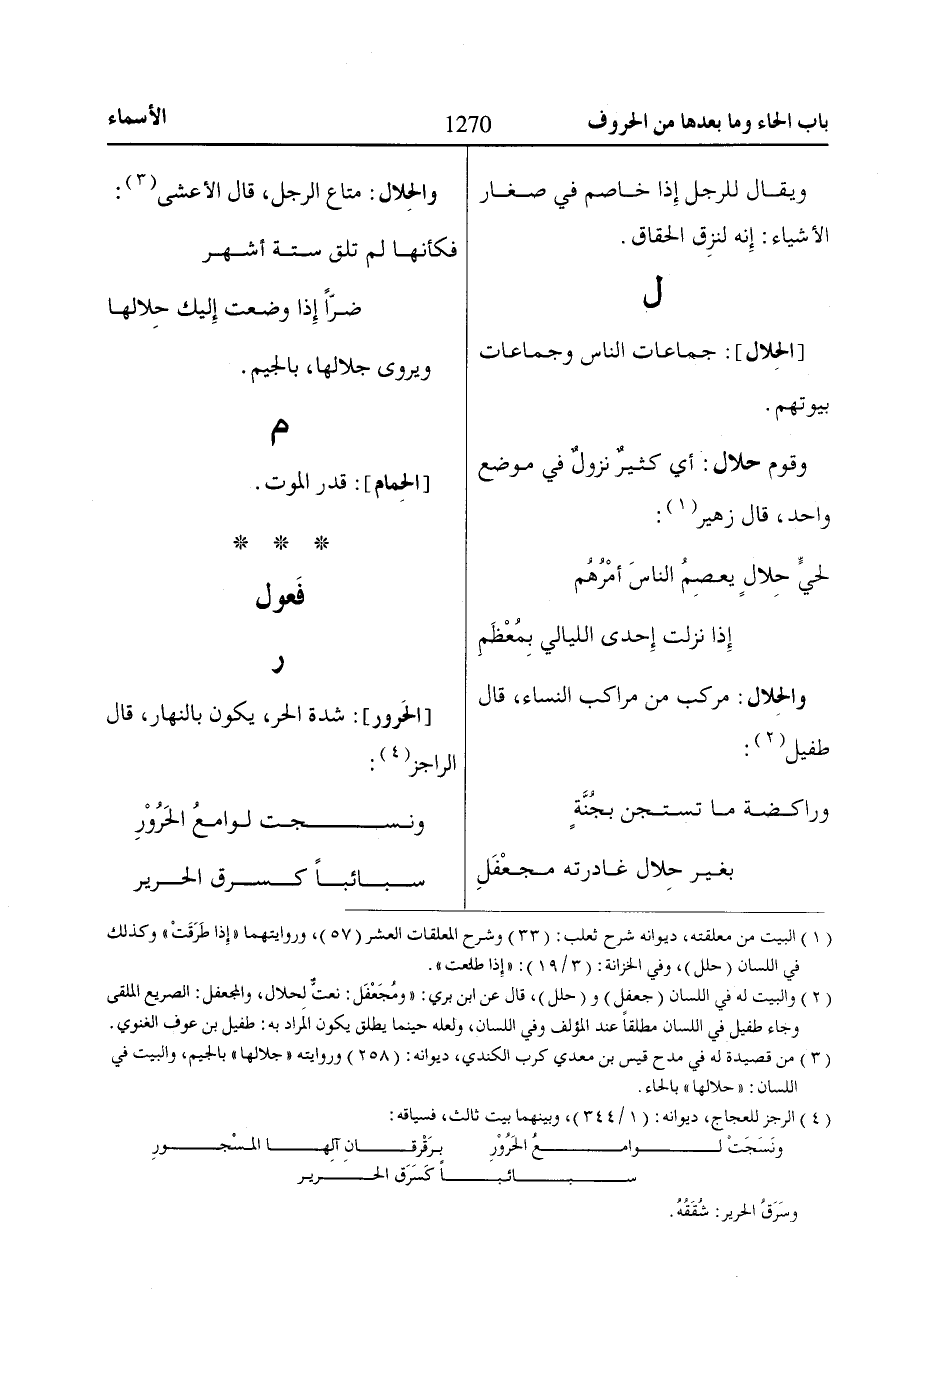 باب الحاء وما بعدها من الحروف
1270
الأسماء
ويقال للرجل إذا خاصم في صغار
الأشياء: إنه لنزِق الحقاق.
ل
[الحِلال]: جماعات الناس وجماعات
بيوتهم.
وقوم حلال: أي كثيرٌ نزولٌ في موضع
واحد، قال زهير(١):
لحيٍّ حِلالٍ يعصِمُ الناسَ أمْرُهُم
إِذا نزلت إِحدى الليالي بِمُعْظَمِ
والحلال: مركب من مراكب النساء، قال
طفيل(٢):
وراكضة ما تستجن بجُنَّةٍ
بغير حِلال غادرته مجعْفَلِ
والحلال: متاع الرجل، قال الأعشى(٣):
فكأنها لم تلق ستة أشهر
ضرّاً إِذا وضعت إِليك حِلالها
ويروى جلالها، بالجيم.
م
[الحِمام]: قدر الموت.
* * *
فَعول
ر
[الحَرور]: شدة الحر، يكون بالنهار، قال
الراجز(٤):
ونسجت لوامعُ الحَرُوْرِ
سبائباً كسرق الحرير
(١) البيت من معلقته، ديوانه شرح ثعلب: (٣٣) وشرح المعلقات العشر (٥٧)، وروايتهما «إذا طَرَقَتْ» وكذلك
في اللسان (حلل)، وفي الخزانة: (١٩/٣): «إذا طلعت».
(٢) والبيت له في اللسان (جعفل) و (حلل)، قال عن ابن بري: «ومُجَعْفَل: نعتٌ لحلال، والمجعفل: الصريع الملقى
وجاء طفيل في اللسان مطلقاً عند المؤلف وفي اللسان، ولعله حينما يطلق يكون المراد به: طفيل بن عوف الغنوي.
(٣) من قصيدة له في مدح قيس بن معدي كرب الكندي، ديوانه: (٢٥٨) وروايته «جلالها» بالجيم، والبيت في
اللسان: «حلالها» بالحاء.
(٤) الرجز للعجاج، ديوانه: (٣٤٤/١)، وبينهما بيت ثالث، فسياقه:
ونَسَجَتْ لوامعُ الحَرُوْرِ برَقْرَقان آلِها المسْجور
سبائباً كَسَرَق الحرير
وسَرَقُ الحرير: شُقَقُهُ.